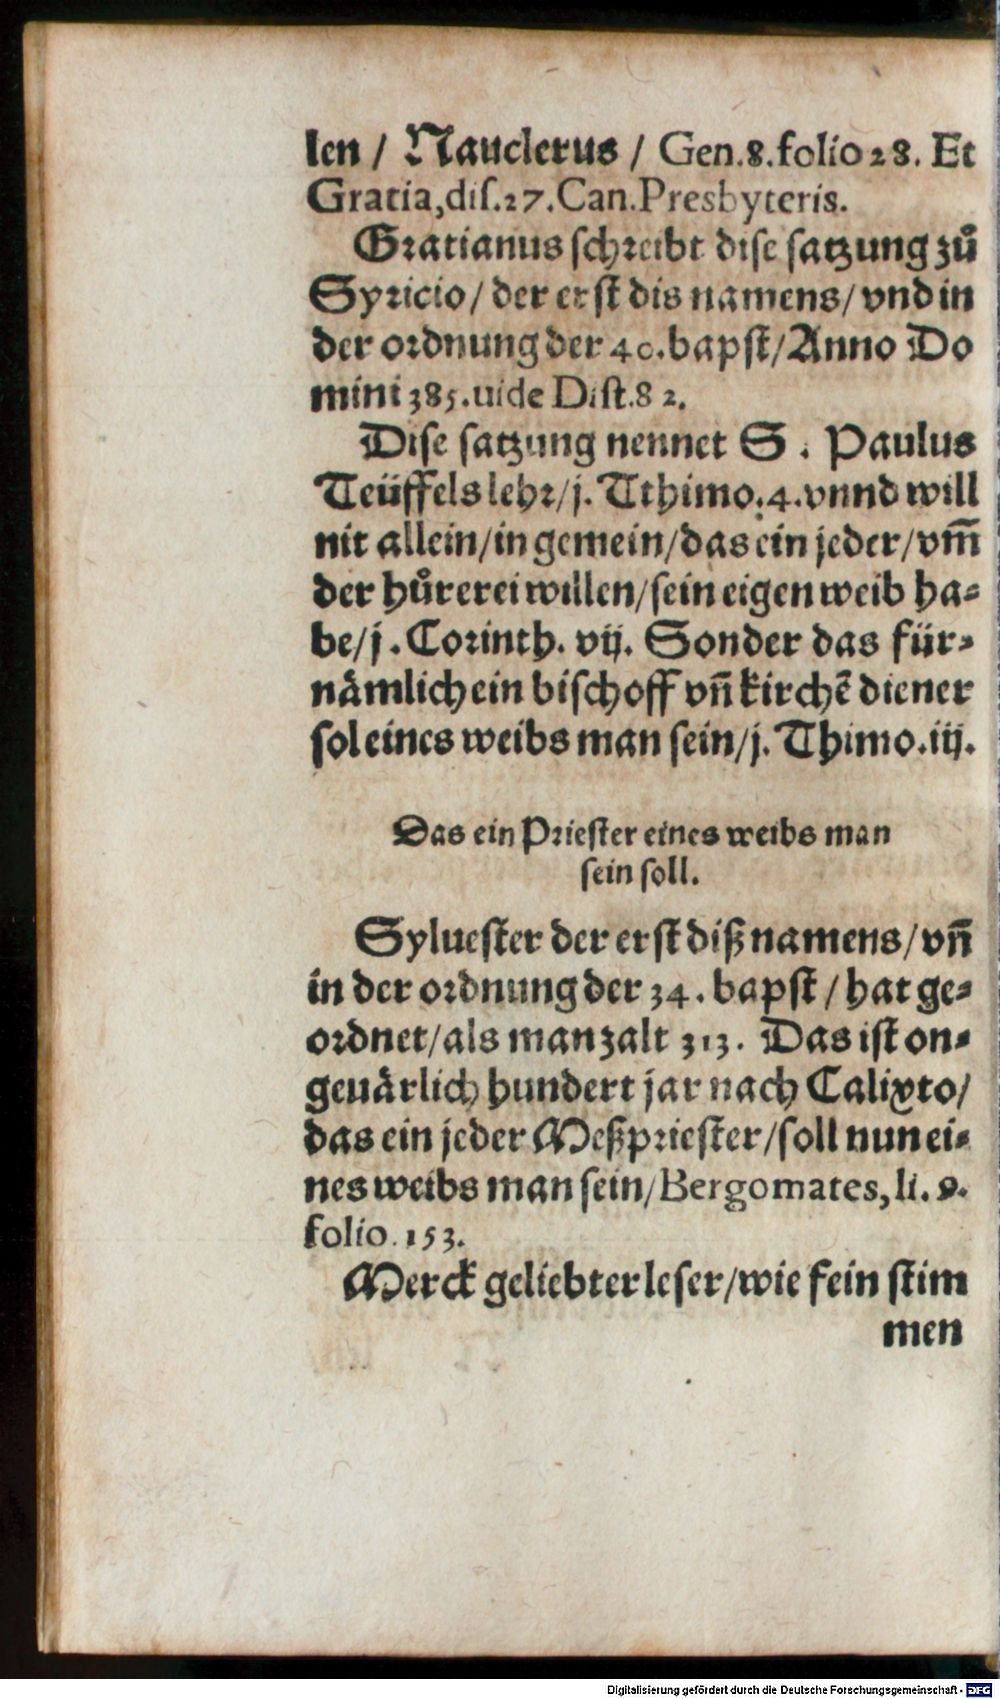 len / Nauclerus / Gen.8.folio 28. Et
Gratia,dis.27.Can.Presbyteris.
Gratianus schreibt dise satzung zů
Syricio / der erst dis namens / vnd in
der ordnung der 40. bapst / Anno Do
mini 385. uide Dist.82.
Dise satzung nennet S. Paulus
Teüffels lehr / j. Tthimo. 4. vnnd will
nit allein / in gemein / das ein jeder / vm̃
der hůrerei willen / sein eigen weib ha-
be / j. Corinth. vij. Sonder das für-
nämlich ein bischoff vñ kirchẽ diener
sol eines weibs man sein / j. Thimo. iij.
Das ein Priester eines weibs man
sein soll.
Syluester der erst diß namens / vñ
in der ordnung der 34. bapst / hat ge-
ordnet / als man zalt 313. Das ist on-
geuärlich hundert jar nach Calixto /
das ein jeder Meßpriester / soll nun ei-
nes weibs man sein / Bergomates, li. 9.
folio. 153.
Merck geliebter leser / wie fein stim
men
Digitalisierung gefördert durch die Deutsche Forschungsgemeinschaft - DFG